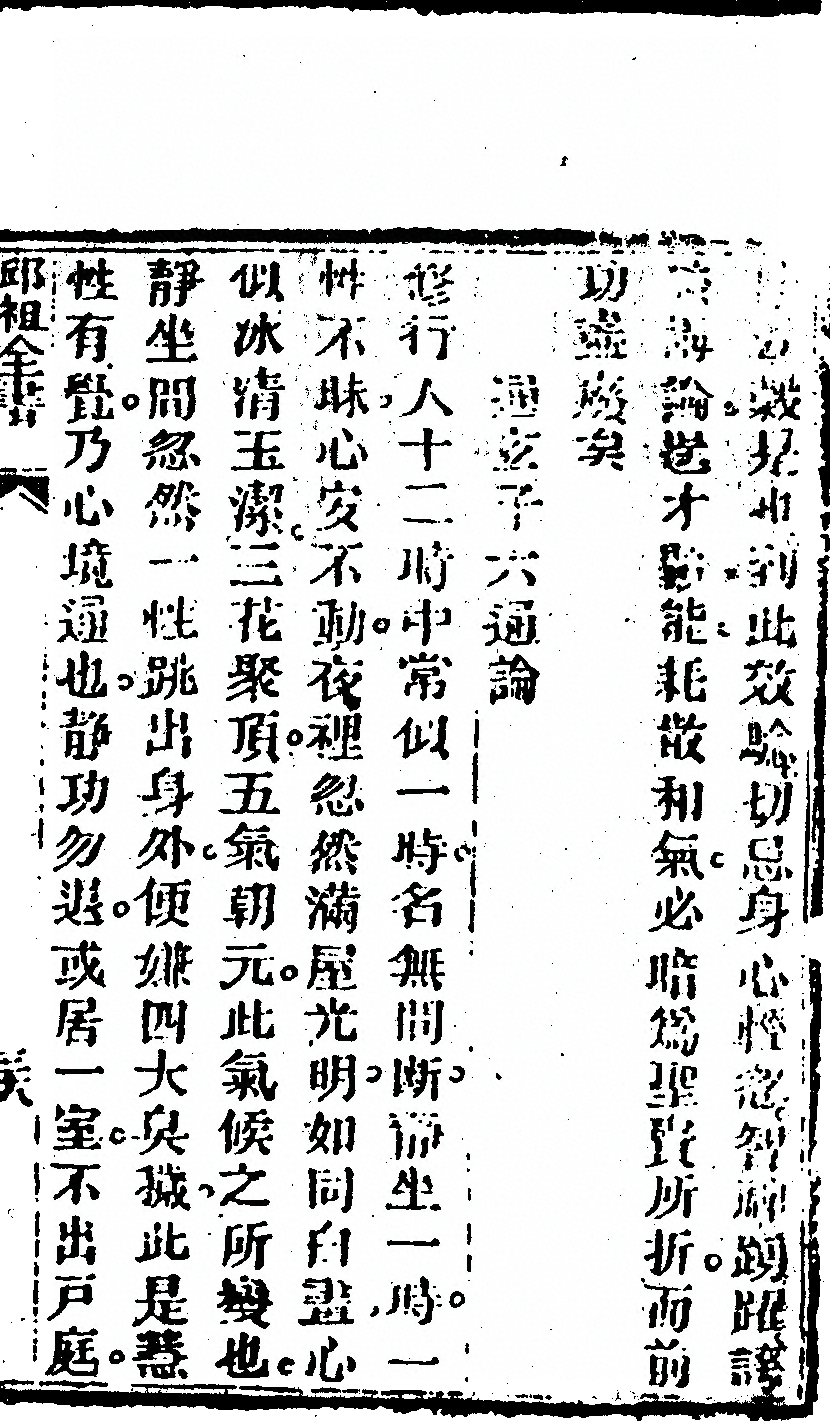 歲是也到此效驗切忌身心輕忽智神踴躍談
論逞才騁能耗散和氣必暗爲聖賢所折而前
功盡廢矣
通玄子六通論
修行人十二時中常似一時名無間斷靜坐一時一
性不昧心安不動夜裡忽然滿屋光明如同白晝心
似冰清玉潔三花聚頂五氣朝元此氣候之所變也
靜坐間忽然一性跳出身外便嫌四大臭穢此是慧
性有覺乃心境通也靜功勿退或居一室不出戸庭
邱祖全書